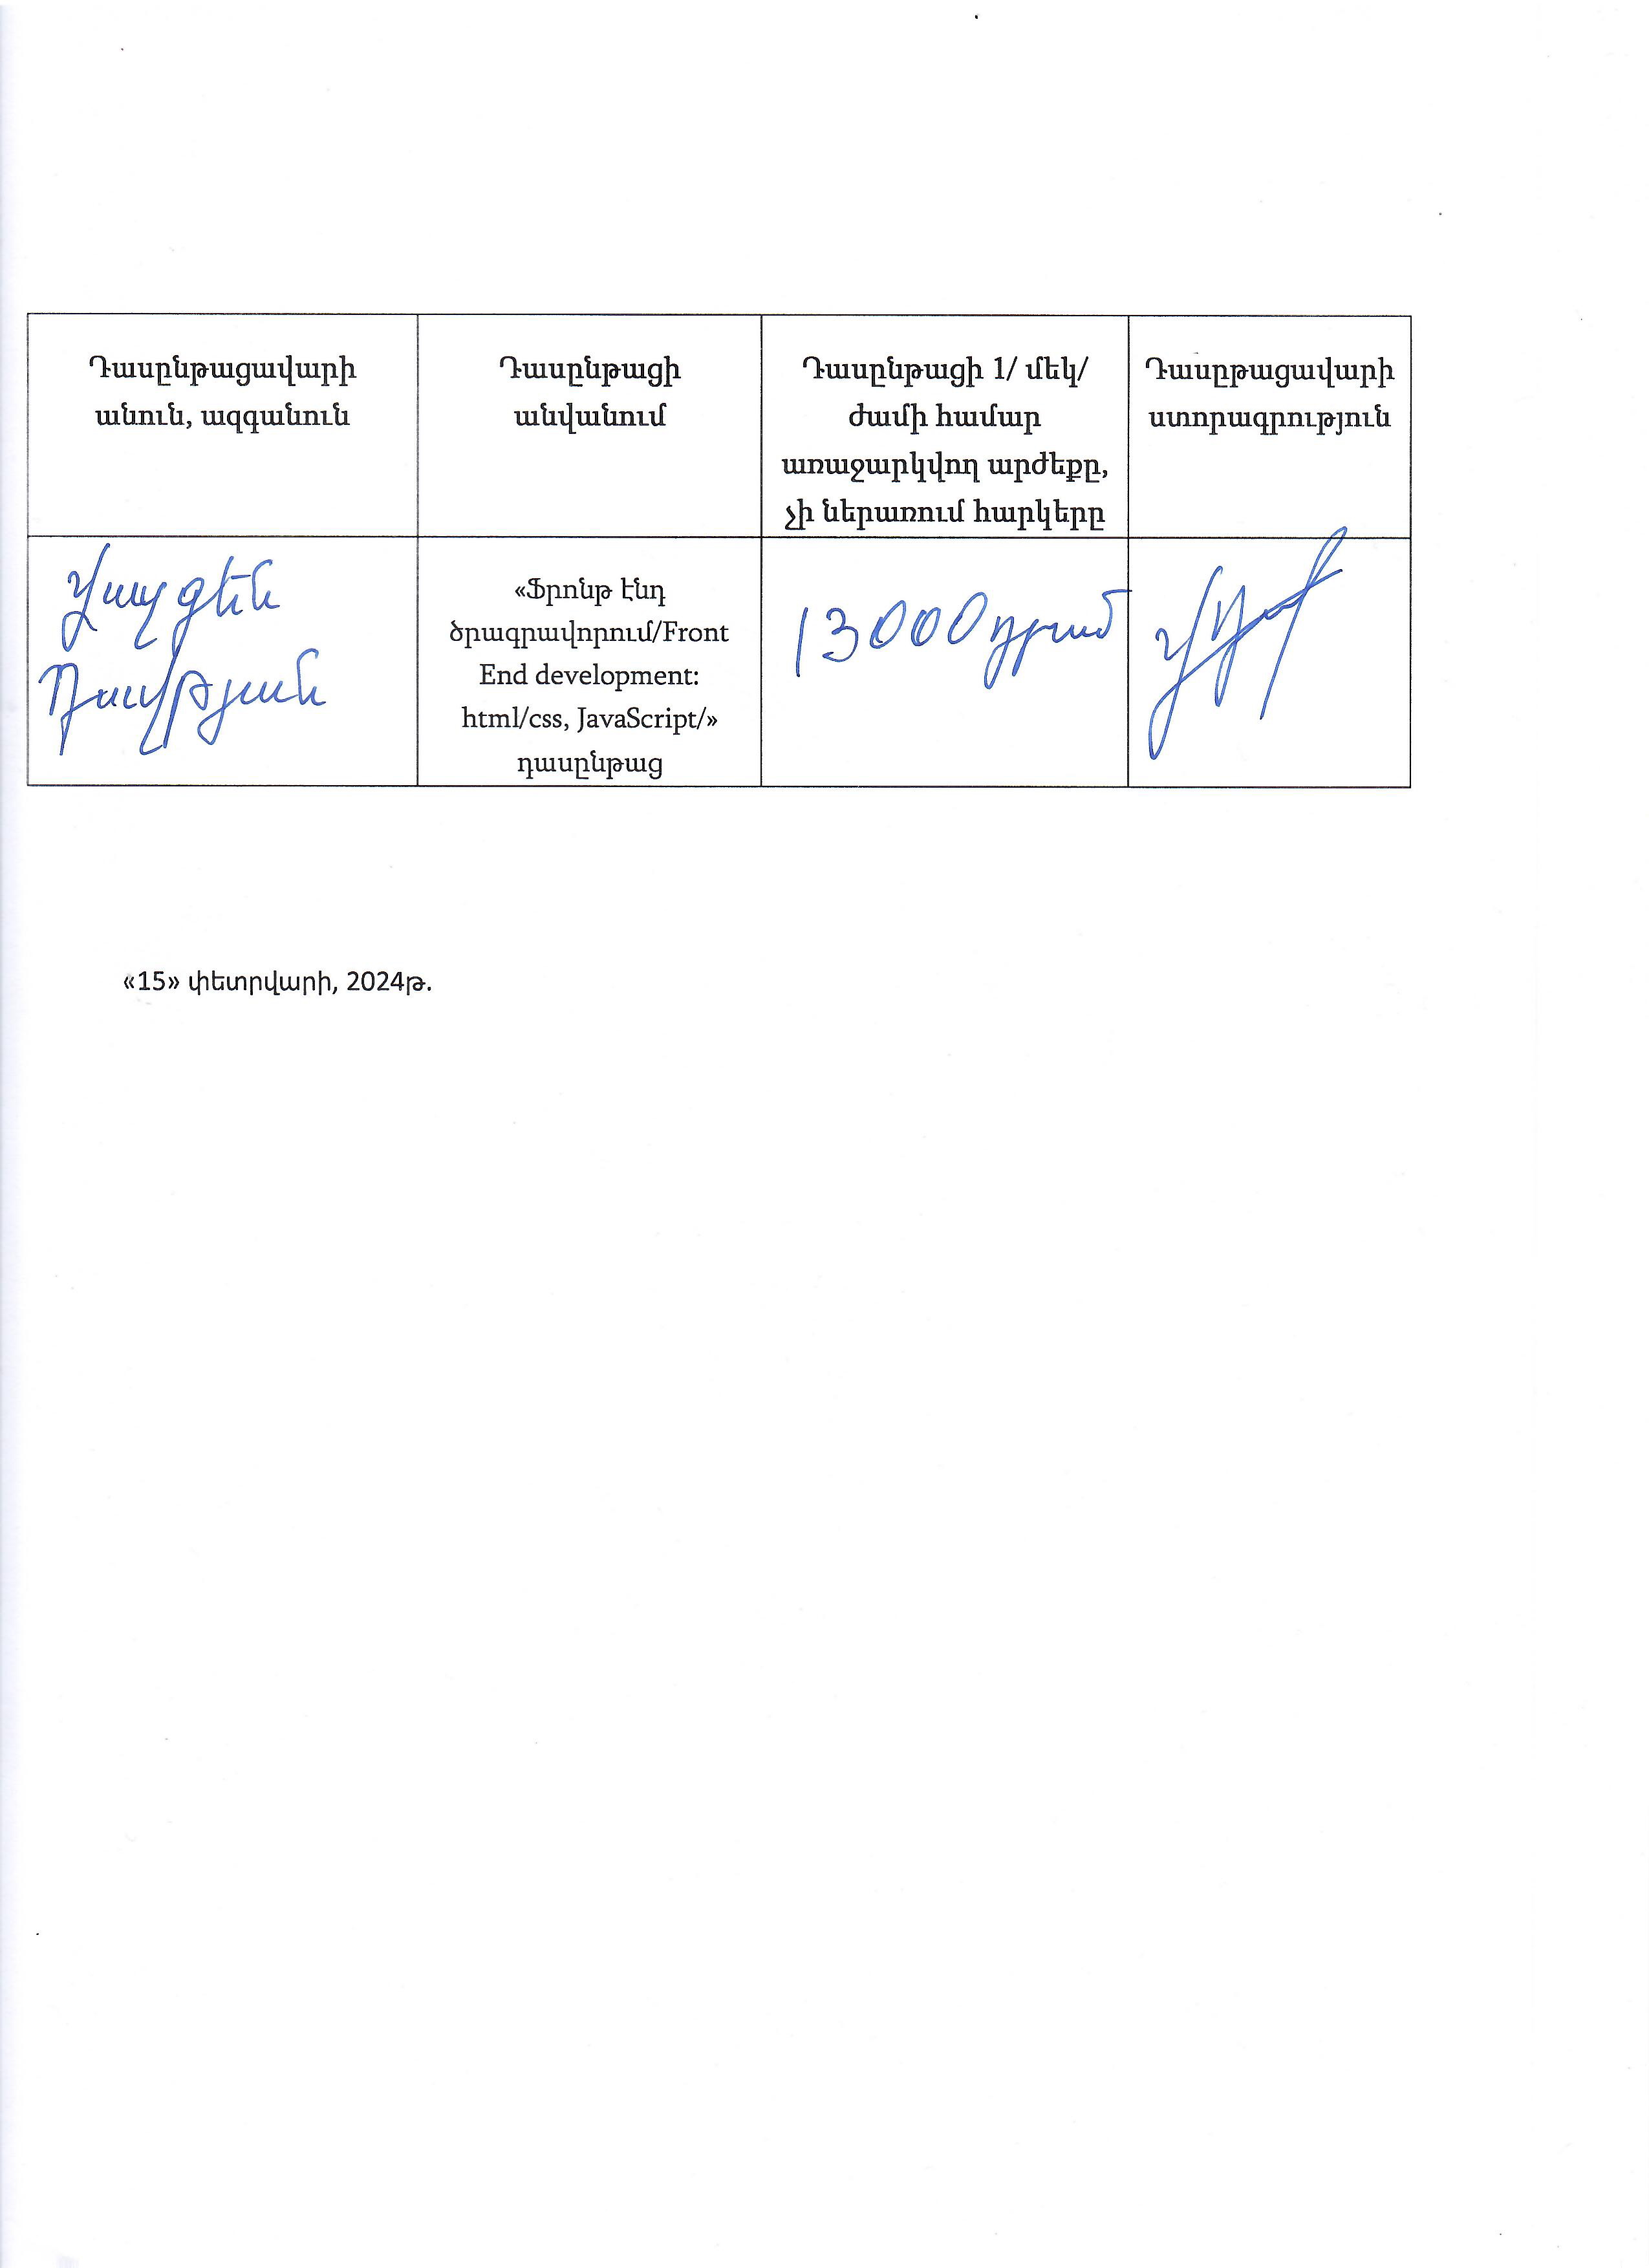 Դասընթացավարի
անուն, ազգանուն
Դասընթացի
անվանում
Դասընթացի 1/ մեկ/
ժամի համար
առաջարկվող արժեքը,
չի ներառում հարկերը
Դասըթացավարի
ստորագրություն
Վազգեն
Դավթյան
«Ֆրոնթ էնդ
ծրագրավորում/Front
End development:
html/css, JavaScript/»
դասընթաց
13000 դրամ
«15» փետրվարի, 2024թ.